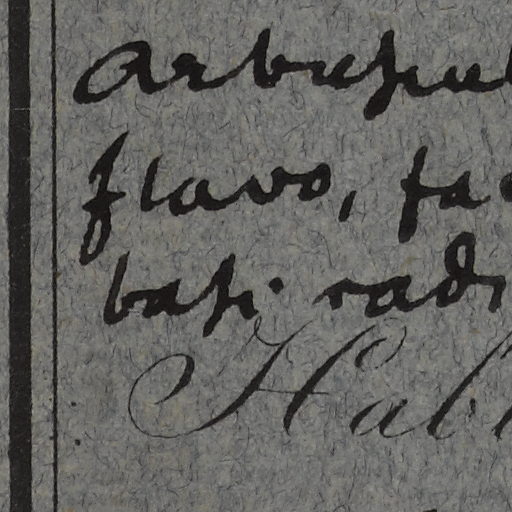 Arbuscul
flavo, fa
basi radi
Hab